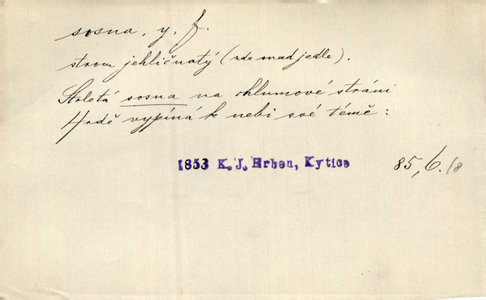 sosna, y, f.
strom jehličnatý (zde snad jedle).
Stoletá sosna na chlumové stráni
Hrdě vypíná k nebi své témě:
1853 K. J. Erben, Kytice 85, 6.